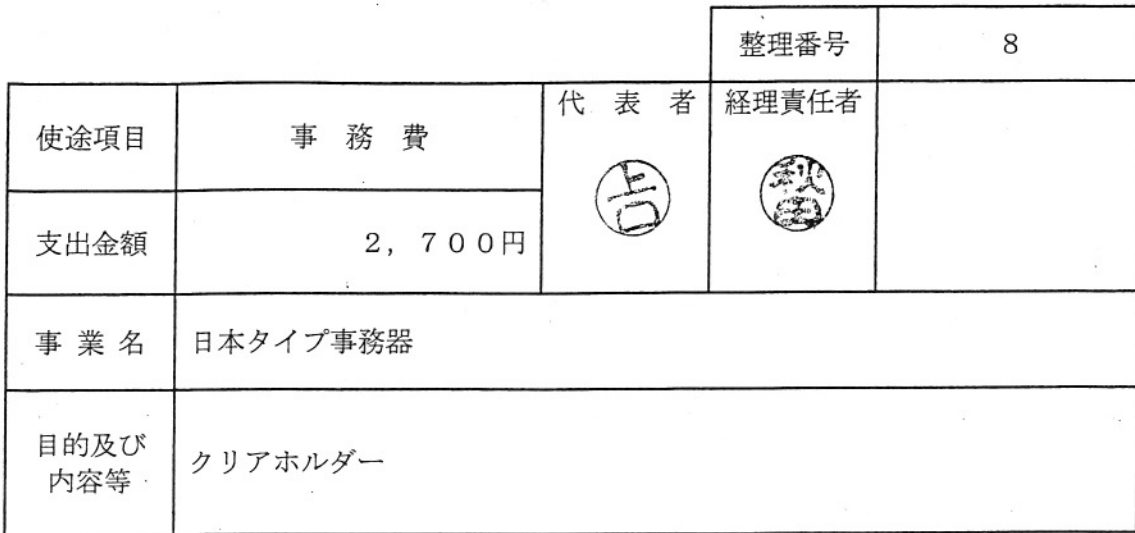 整理番号 8
使途項目 事務費 代表者 経理責任者
上口 秋田
支出金額 2,700円
事業名 日本タイプ事務器
目的及び
内容等 クリアホルダー